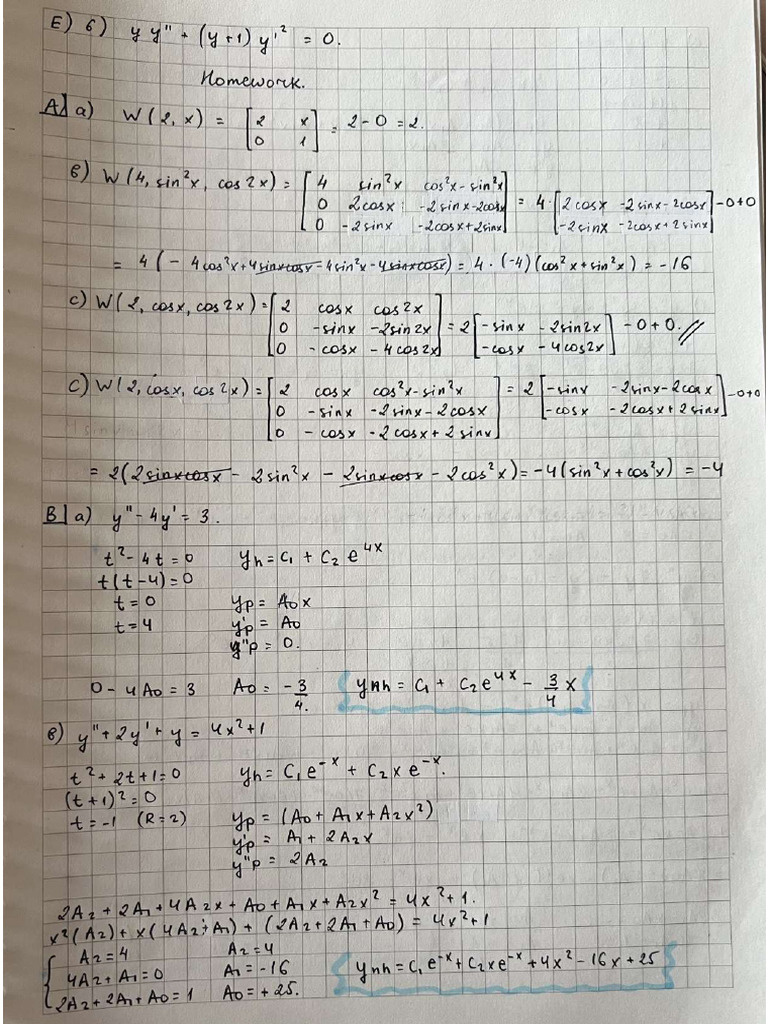 E) б) y y" + (y+1) y'² = 0.
Homework.
A) a) W(2, x) = [2 x; 0 1] = 2-0 = 2.
б) W(4, sin²x, cos2x) = [4 sin²x cos²x-sin²x; 0 2cosx -2sinx-2cosx; 0 -2sinx -2cosx+2sinx] = 4·[2cosx -2sinx-2cosx; -2sinx -2cosx+2sinx] -0+0
= 4(-4cos²x+4sinxcosx-4sin²x-4sinxcosx) = 4·(-4)(cos²x+sin²x) = -16
c) W(2, cosx, cos2x) = [2 cosx cos2x; 0 -sinx -2sin2x; 0 -cosx -4cos2x] = 2[-sinx -2sin2x; -cosx -4cos2x] -0+0. //
c) W(2, cosx, cos2x) = [2 cosx cos²x-sin²x; 0 -sinx -2sinx-2cosx; 0 -cosx -2cosx+2sinx] = 2[-sinx -2sinx-2cosx; -cosx -2cosx+2sinx] -0+0
= 2(2sinxcosx - 2sin²x - 2sinxcosx - 2cos²x) = -4(sin²x+cos²x) = -4
B) a) y"-4y' = 3.
t²-4t=0 yh = C₁ + C₂e^4x
t(t-4)=0
t=0 yp = A₀x
t=4 y'p = A₀
y"p = 0.
0-4A₀=3 A₀ = -3/4. ynh = C₁ + C₂e^4x - 3/4 x
б) y"+2y'+y = 4x²+1
t²+2t+1=0 yh = C₁e^-x + C₂xe^-x.
(t+1)²=0
t=-1 (R=2) yp = (A₀+A₁x+A₂x²)
y'p = A₁+2A₂x
y"p = 2A₂
2A₂+2A₁+4A₂x+A₀+A₁x+A₂x² = 4x²+1.
x²(A₂)+x(4A₂+A₁)+(2A₂+2A₁+A₀) = 4x²+1
{ A₂=4 A₂=4
4A₂+A₁=0 A₁=-16
2A₂+2A₁+A₀=1 A₀=+25. ynh = C₁e^-x+C₂xe^-x+4x²-16x+25